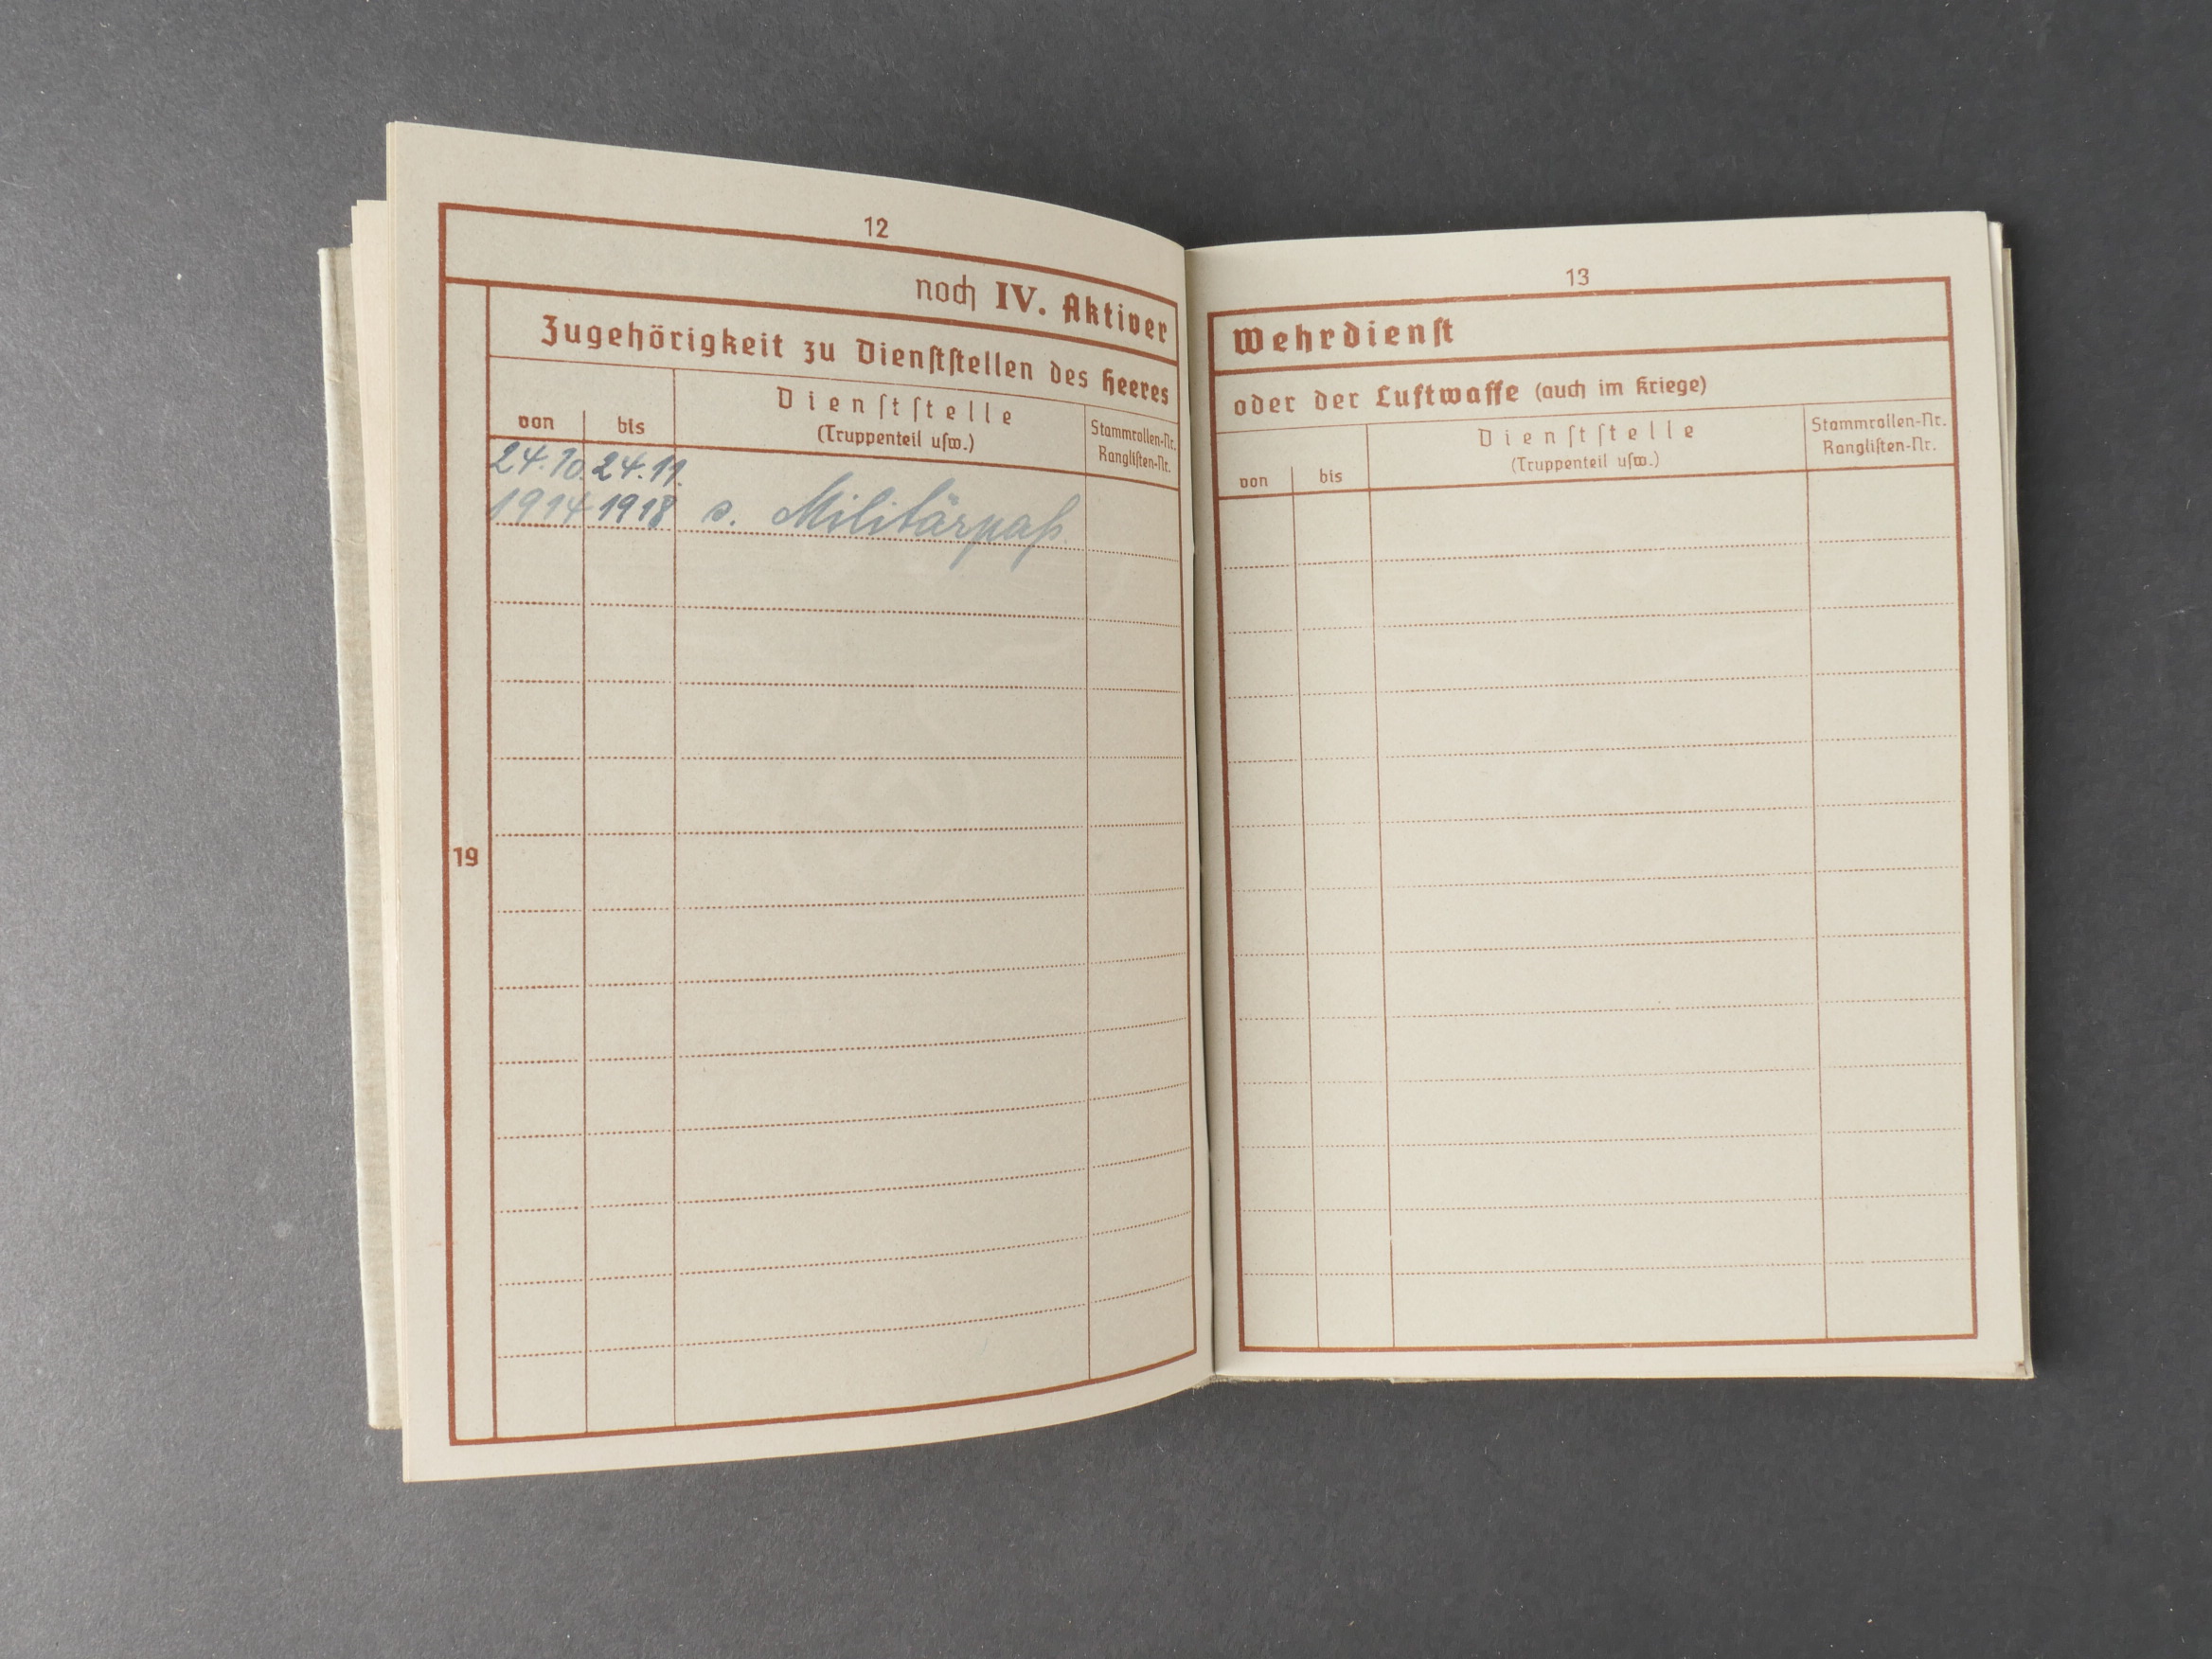 12
noch IV. Aktiver
Zugehörigkeit zu Dienststellen des Heeres
von bis Dienststelle
(Truppenteil usw.)
Stammrollen-Nr.
Ranglisten-Nr.
24.10. 24.11.
1914 1918 s. Militärpaß.
19
13
Wehrdienst
oder der Luftwaffe (auch im Kriege)
von bis Dienststelle
(Truppenteil usw.)
Stammrollen-Nr.
Ranglisten-Nr.